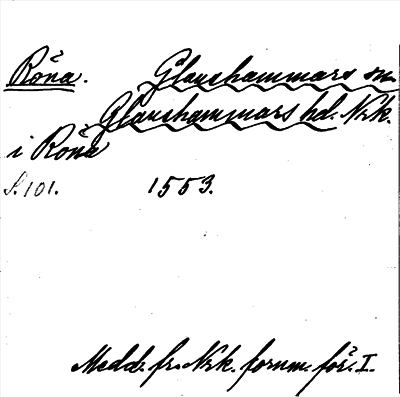 Röna. Glanshammars sn.
Glanshammars hd. Nrk.
i Röna
S. 101. 1553.
Medd. fr. Nrk. fornm. för. I.